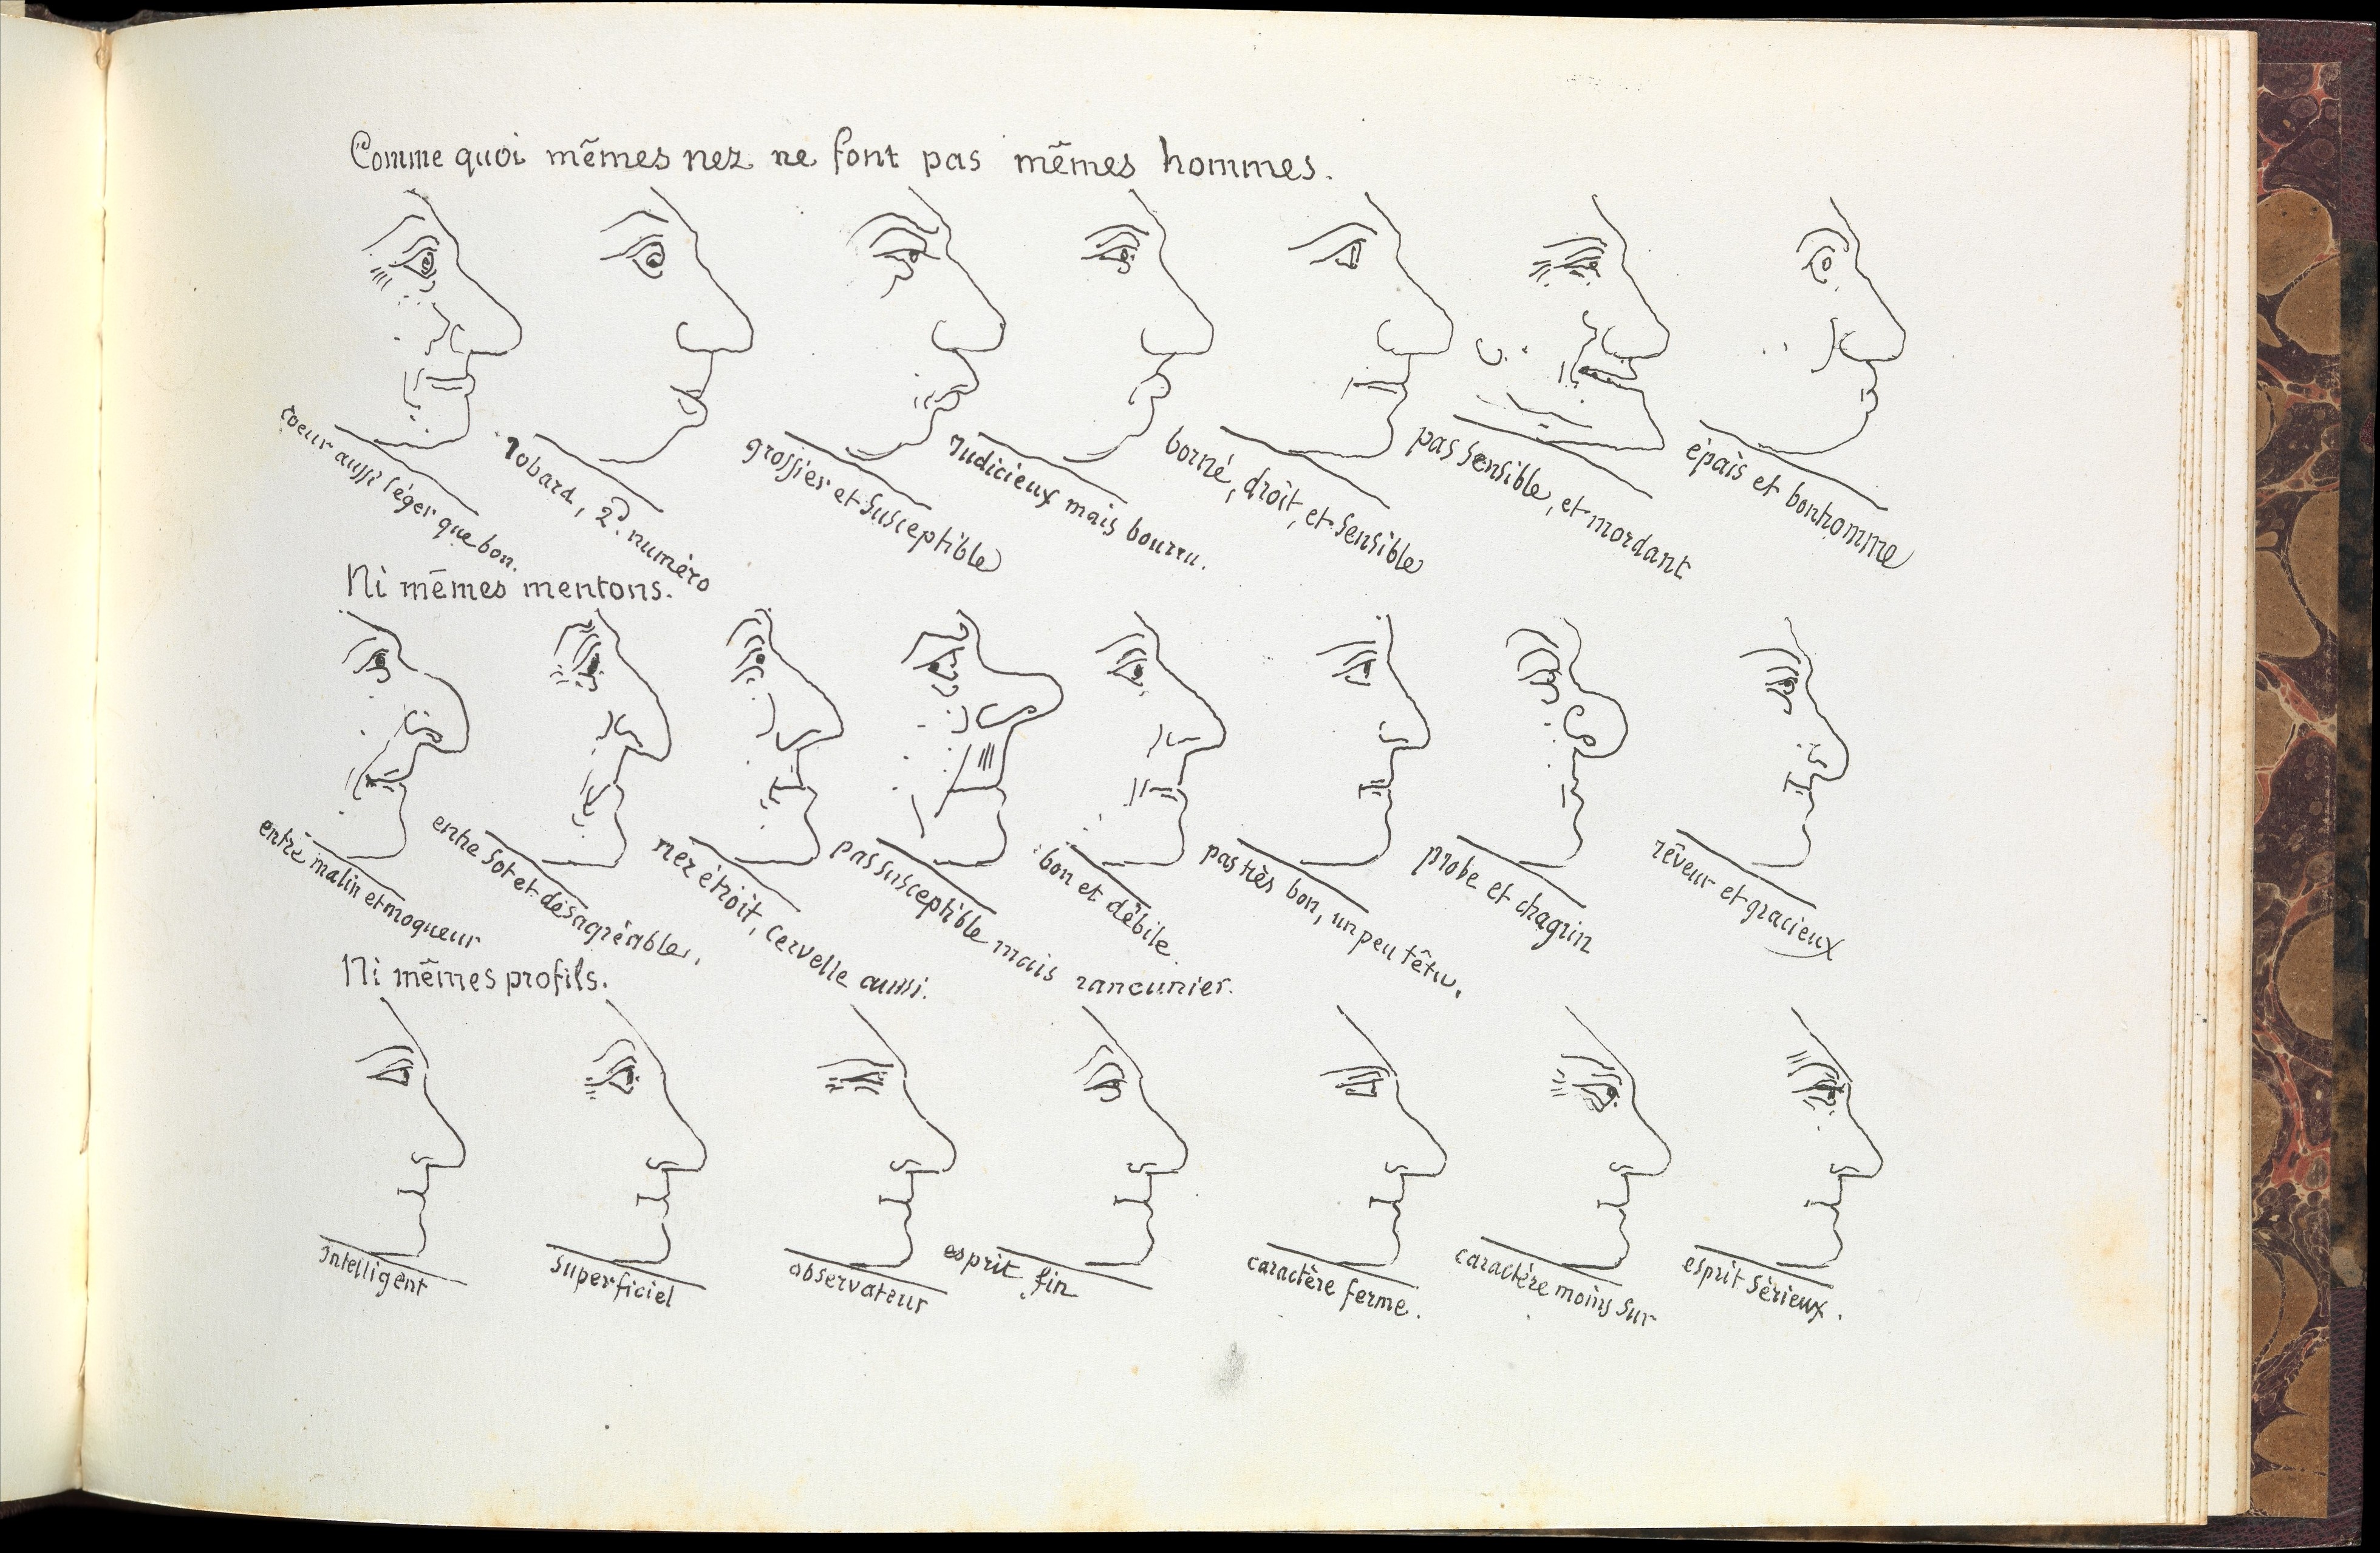 Comme quoi mêmes nez ne font pas mêmes hommes.
coeur aussi léger que bon.
Jobard, 2d. numéro
grossier et susceptible
Judicieux mais bourru.
borné, droit, et sensible
pas sensible, et mordant
épais et bonhomme
Ni mêmes mentons.
entre malin et moqueur
entre sot et désagréable,
nez étroit, cervelle aussi.
pas susceptible mais rancunier.
bon et débile.
pas très bon, un peu têtu.
probe et chagrin
rêveur et gracieux
Ni mêmes profils.
Intelligent
superficiel
observateur
esprit fin
caractère ferme.
caractère moins sur
esprit sérieux.